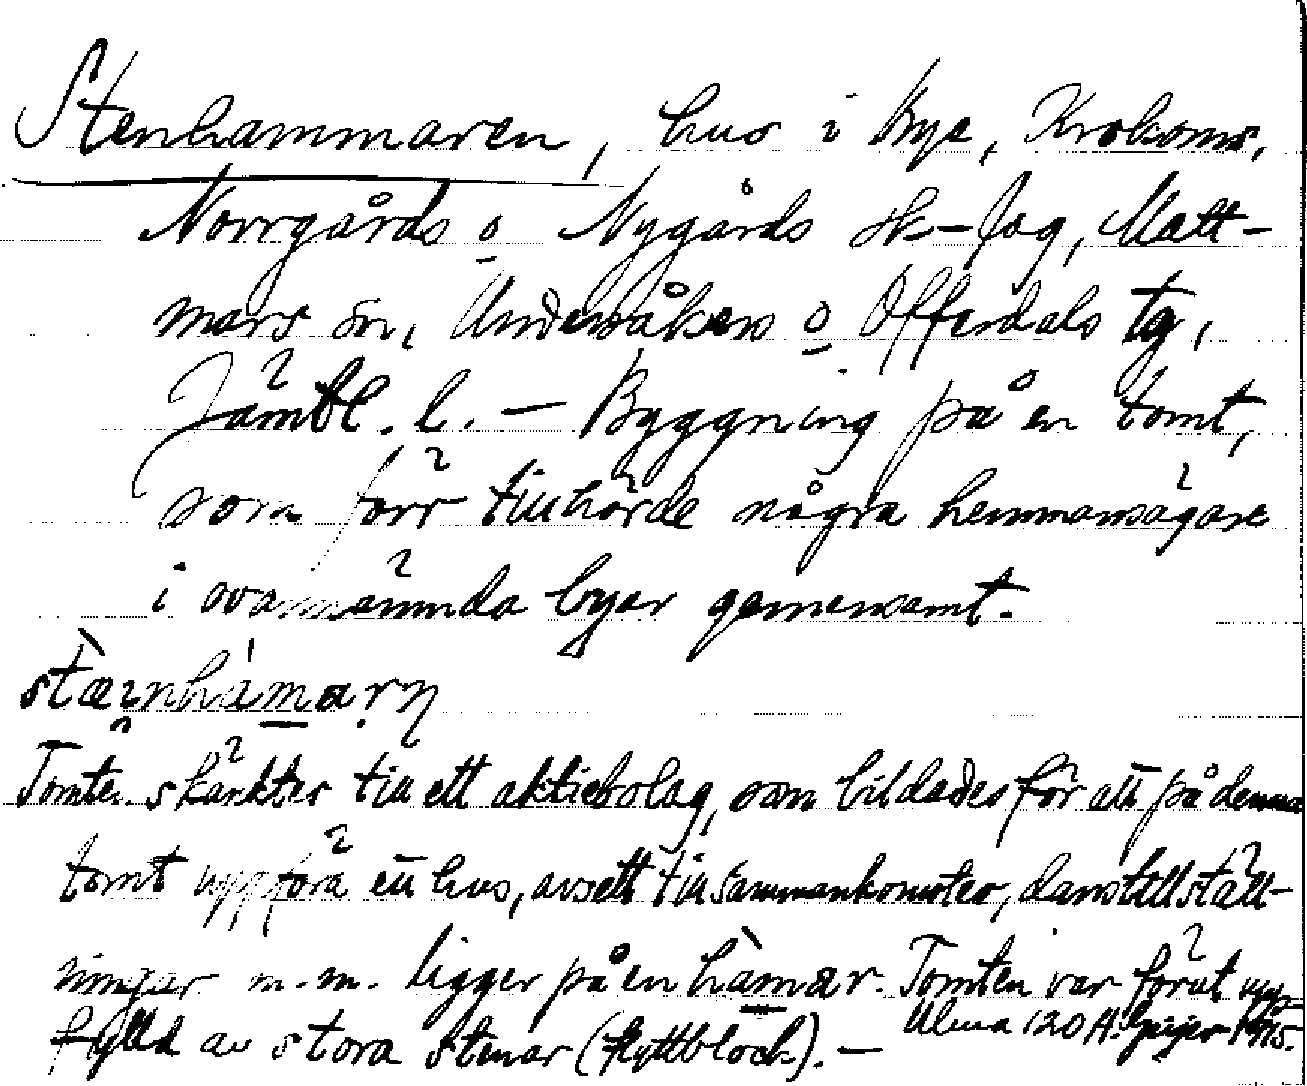 Stenhammaren, hus i Bye, Krokoms,
Norrgårds o Nygårds sk-lag, Matt-
mars sn, Undersåkers o Offerdals tg,
Jämtl. l. — Byggning på en tomt,
som förr tillhörde några hemmansägare
i ovannämnda byar gemensamt.
Tomten skänktes till ett aktiebolag, som bildades för att på denna
tomt uppföra ett hus, avsett till sammankomster, danstillställ-
ningar m.m. ligger på en hàmar. Tomten var förut upp-
fylld av stora stenar (flyttblock). —
Alma 120 H. Geijer 1915.